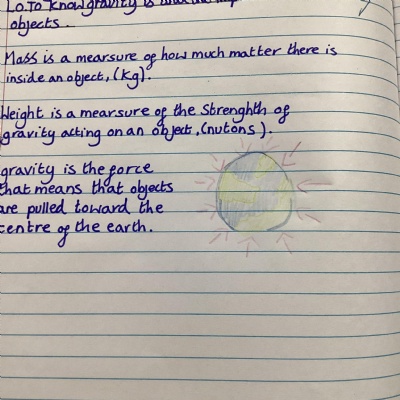 L.O.To know gravity is
objects.
Mass is a mearsure of how much matter there is
inside an object, (Kg).
Weight is a mearsure of the Strenghth of
gravity acting on an object, (nutons).
gravity is the force
that means that objects
are pulled toward the
centre of the earth.